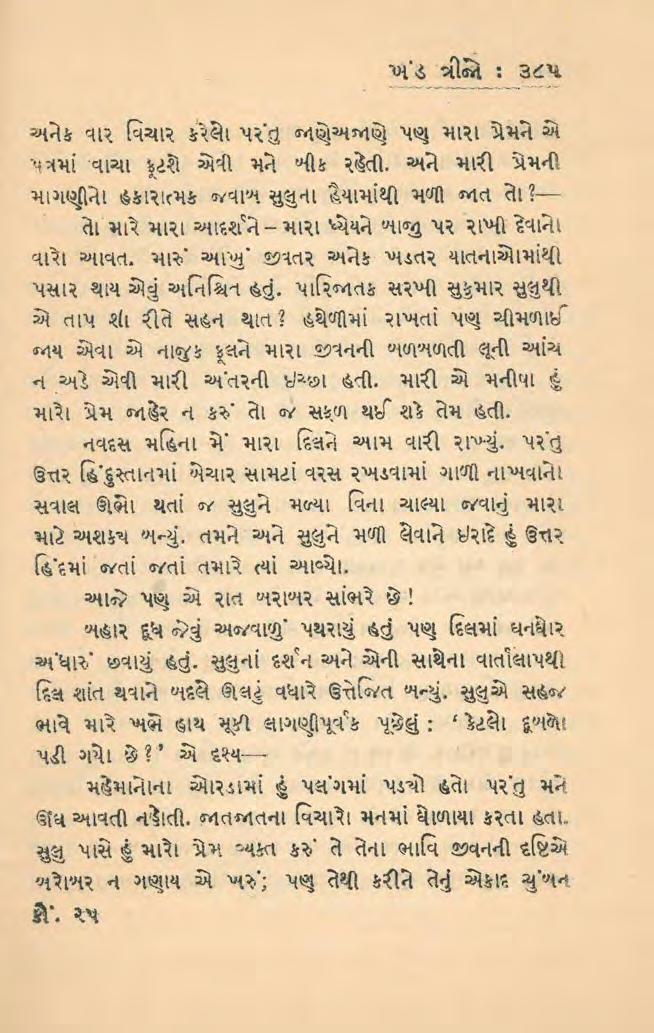 ખંડ ત્રીજો : ૩૮૫
અનેક વાર વિચાર કરેલો પરંતુ જાણેઅજાણે પણ મારા પ્રેમને એ
પત્રમાં વાચા ફૂટશે એવી મને બીક રહેતી. અને મારી પ્રેમની
માગણીનો હકારાત્મક જવાબ સુલુના હૈયામાંથી મળી જાત તો?—
તો મારે મારા આદર્શને – મારા ધ્યેયને બાજુ પર રાખી દેવાનો
વારો આવત. મારું આખું જીવતર અનેક ખડતર યાતનાઓમાંથી
પસાર થાય એવું અનિશ્ચિત હતું. પારિજાતક સરખી સુકુમાર સુલુથી
એ તાપ શી રીતે સહન થાત? હથેળીમાં રાખતાં પણ ચીમળાઈ
જાય એવા એ નાજુક ફૂલને મારા જીવનની બળબળતી લૂની આંચ
ન અડે એવી મારી અંતરની ઇચ્છા હતી. મારી એ મનીષા હું
મારો પ્રેમ જાહેર ન કરું તો જ સફળ થઈ શકે તેમ હતી.
નવદસ મહિના મેં મારા દિલને આમ વારી રાખ્યું. પરંતુ
ઉત્તર હિંદુસ્તાનમાં બેચાર સામટાં વરસ રખડવામાં ગાળી નાખવાનો
સવાલ ઊભો થતાં જ સુલુને મળ્યા વિના ચાલ્યા જવાનું મારા
માટે અશક્ય બન્યું. તમને અને સુલુને મળી લેવાને ઇરાદે હું ઉત્તર
હિંદમાં જતાં જતાં તમારે ત્યાં આવ્યો.
આજે પણ એ રાત બરાબર સાંભરે છે!
બહાર દૂધ જેવું અજવાળું પથરાયું હતું પણ દિલમાં ઘનઘોર
અંધારું છવાયું હતું. સુલુનાં દર્શન અને એની સાથેના વાર્તાલાપથી
દિલ શાંત થવાને બદલે ઊલટું વધારે ઉત્તેજિત બન્યું. સુલુએ સહજ
ભાવે મારે ખભે હાથ મૂકી લાગણીપૂર્વક પૂછેલું : ‘કેટલો દૂબળો
પડી ગયો છે?’ એ દૃશ્ય—
મહેમાનોના ઓરડામાં હું પલંગમાં પડ્યો હતો પરંતુ મને
ઊંઘ આવતી નહોતી. જાતજાતના વિચારો મનમાં ઘોળાયા કરતા હતા.
સુલુ પાસે હું મારો પ્રેમ વ્યક્ત કરું તે તેના ભાવિ જીવનની દૃષ્ટિએ
બરોબર ન ગણાય એ ખરું; પણ તેથી કરીને તેનું એકાદ ચુંબન
ક્રૌં. ૨૫